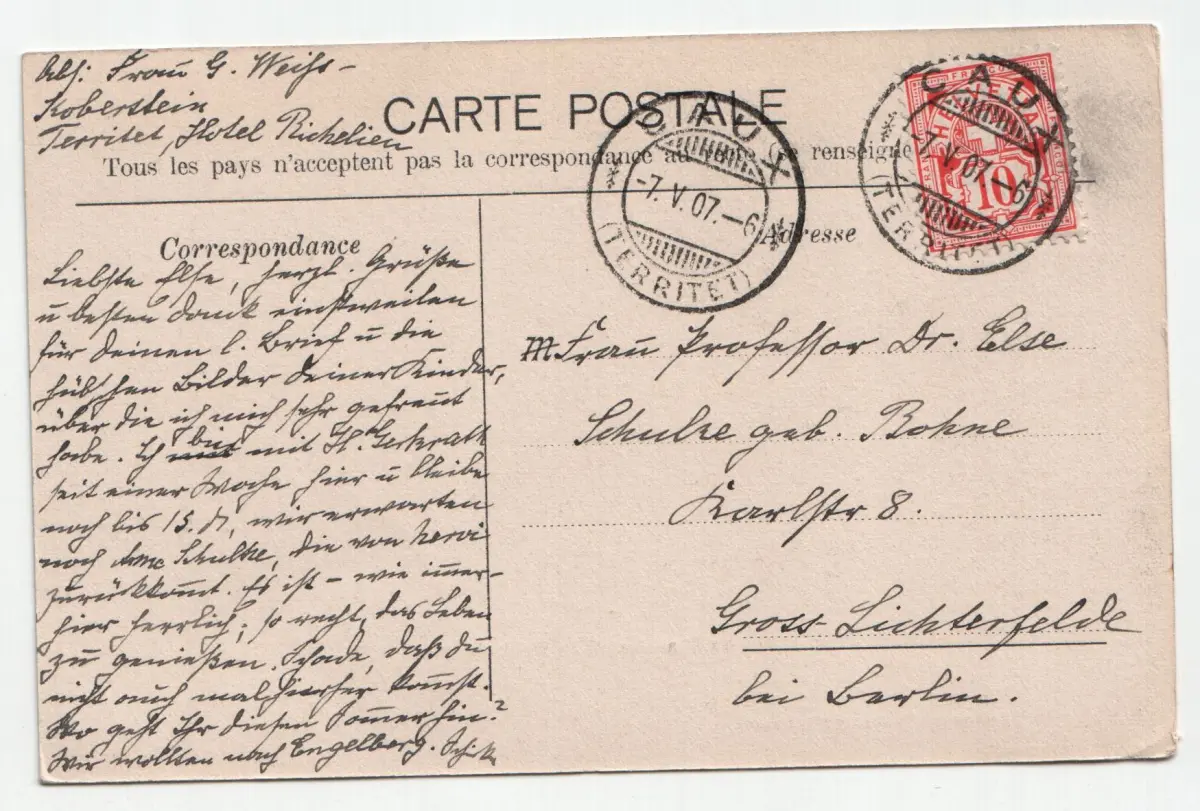 Abs: Frau G. Weiss-
Koberstein
Territet, Hotel Richelieu
CARTE POSTALE
Tous les pays n'acceptent pas la correspondance au renseigne
CAUX
-7.V.07.-6
(TERRITET)
CAUX
-7.V.07.-6
(TERRITET)
HELVETIA
FRANCO
10
Correspondance
Liebste Else, herzl. Grüße
u besten Dank einstweilen
für deinen l. Brief u die
hübschen Bilder deiner Kinder,
über die ich mich sehr gefreut
habe. Ich bin mit H.
seit einer Woche hier u bleibe
noch bis 15. d, wir erwarten
noch Schultze, die von Nervi
zurückkommt. Es ist - wie immer -
hier herrlich; so recht, das Leben
zu genießen. Schade, daß du
nicht auch mal hierher kommst.
Wo geht Ihr diesen Sommer hin?
Wir wollten nach Engelberg.
Adresse
M Frau Professor Dr. Else
Schulze geb. Bohne
Karlstr 8.
Gross-Lichterfelde
bei Berlin.